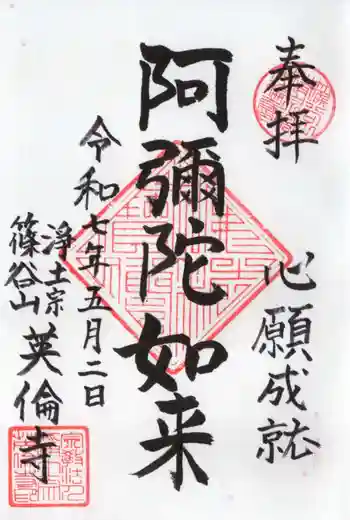 奉拝
心願成就
阿彌陀如来
令和七年五月二日
浄土宗
篠谷山
英倫寺